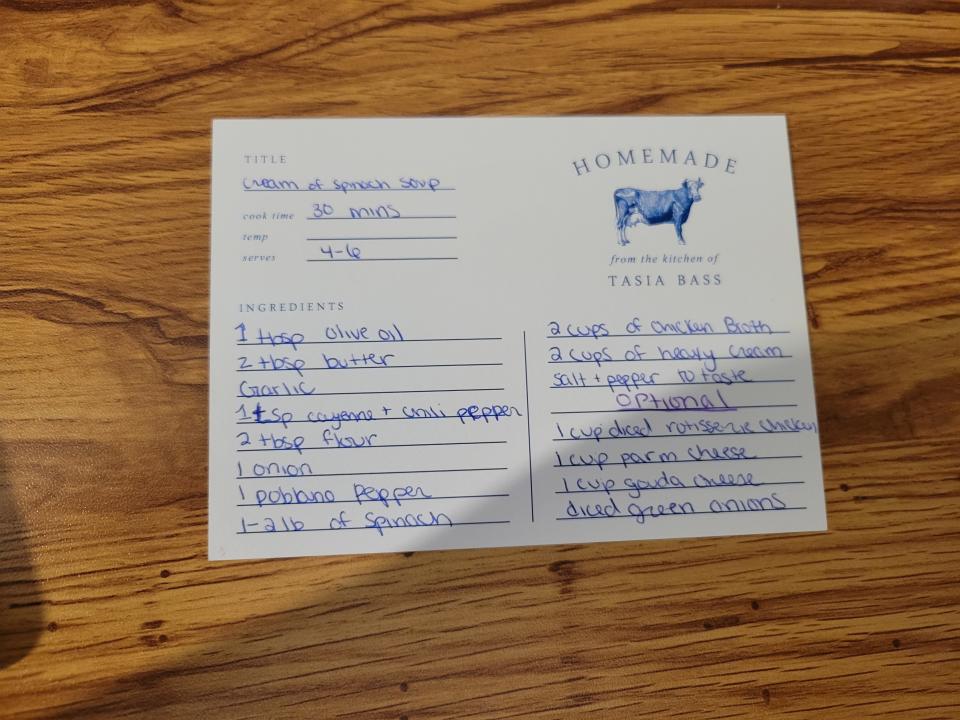 TITLE
Cream of Spinach Soup
cook time 30 mins
temp
serves 4-6
HOMEMADE
from the kitchen of
TASIA BASS
INGREDIENTS
1 tbsp olive oil
2 tbsp butter
Garlic
1 tsp cayenne + chili pepper
2 tbsp flour
1 onion
1 poblano pepper
1-2 lb of spinach
2 cups of chicken Broth
2 cups of heavy cream
salt + pepper to taste
Optional
1 cup diced rotisserie chicken
1 cup parm cheese
1 cup gouda cheese
diced green onions